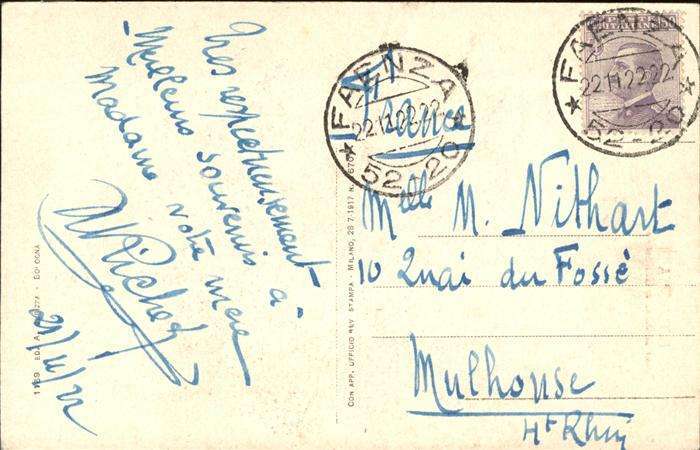 Très respectueusement
Meilleurs souvenirs à
Madame votre mère
21/11/22
1189 EDI. A. BOLOGNA
CON APP. UFFICIO REV. STAMPA - MILANO, 28-7-1917 N.
FAENZA
22.11.22.22
52-20
France
FAENZA
22.11.22.22
52-20
50
Melle M. Nithart
10 Quai du Fossé
Mulhouse
Ht Rhin